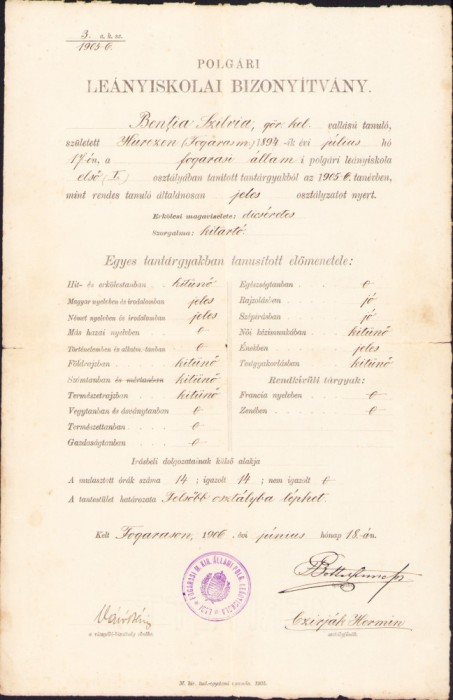 3. a. k. sz.
1905-6.
POLGÁRI
LEÁNYISKOLAI BIZONYÍTVÁNY.
Bentia Szilvia, gör. kel. vallású tanuló,
született Hurezen (Fogarasm.) 1894-ik évi július hó
17-én, a fogarasi állami polgári leányiskola
első (I.) osztályában tanított tantárgyakból az 1905/6. tanévben,
mint rendes tanuló általánosan jeles osztályzatot nyert.
Erkölcsi magaviselete: dicséretes
Szorgalma: kitartó.
Egyes tantárgyakban tanusított előmenetele:
Hit- és erkölcstanban kitünő
Magyar nyelvben és irodalomban jeles
Német nyelvben és irodalomban jeles
Más hazai nyelvben 0
Történelemben és alkotm.-tanban 0
Földrajzban kitünő
Számtanban és mértanban kitünő
Természetrajzban kitünő
Vegytanban és ásványtanban 0
Természettanban 0
Gazdaságtanban 0
Egészségtanban 0
Rajzolásban jó
Szépirásban jó
Női kézimunkában kitünő
Énekben jeles
Testgyakorlásban kitünő
Rendkivüli tárgyak:
Francia nyelvben 0
Zenében 0
Irásbeli dolgozatainak külső alakja
A mulasztott órák száma 14; igazolt 14; nem igazolt 0
A tantestület határozata Felsőbb osztályba léphet.
Kelt Fogarason, 1906 évi június hónap 18-án.
FOGARASI M. KIR. ÁLLAMI POLG. LEÁNYISKOLA
Czirják Hermin
osztályfőnök.